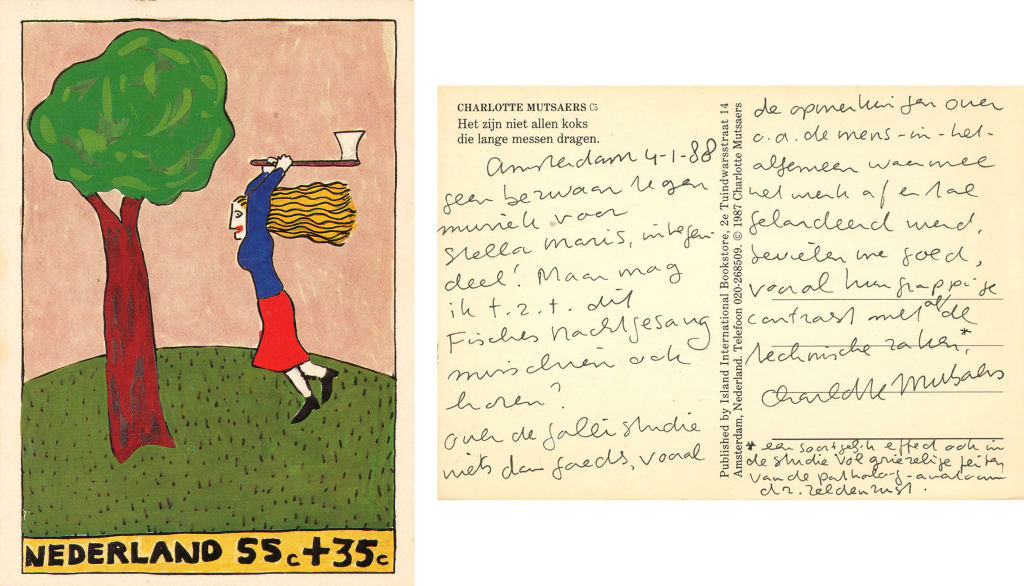 NEDERLAND 55c+35c
CHARLOTTE MUTSAERS C5
Het zijn niet allen koks
die lange messen dragen.
Amsterdam 4-1-88
geen bezwaar tegen
muziek voor
Stella Maris, inte-
deel! Maar mag
ik t.z.t. dit
Fisches Nachtgesang
misschien ook
horen?
Over de studie
niets dan goeds, vooral
Published by Island International Bookstore, 2e Tuindwarsstraat 14
Amsterdam, Nederland. Telefoon 020-268509. © 1987 Charlotte Mutsaers
de opmerkingen over
o.a. de mens-in-het-
algemeen waarmee
het werk af en toe
gelardeerd werd,
bevielen me goed,
vooral hun grappige
contrast met al de
technische zaken.*
Charlotte Mutsaers
* een soortgelijk effect ook in
de studie vol griezelige feiten
van de patholoog-anatoom
dr. Zeldenrust.